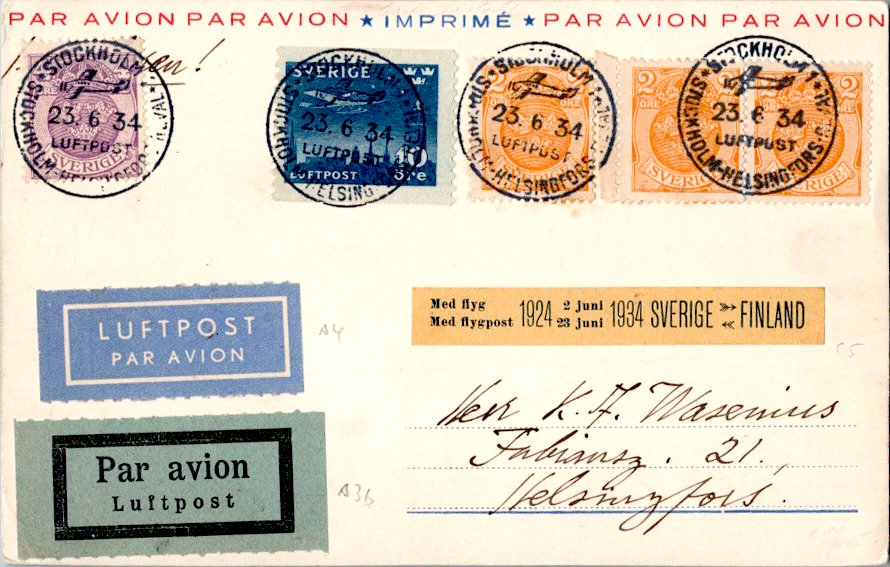 PAR AVION PAR AVION ★ IMPRIMÉ ★ PAR AVION PAR AVION
STOCKHOLM 1
23.6.34
LUFTPOST
STOCKHOLM-HELSINGFORS
SVERIGE
SVERIGE
STOCKHOLM 1
23.6 34
LUFTPOST
STOCKHOLM-HELSINGFORS
10 öre
LUFTPOST
STOCKHOLM 1
23.6 34
LUFTPOST
STOCKHOLM-HELSINGFORS
2 ÖRE
2 ÖRE
SVERIGE
2
STOCKHOLM 1
23.6 34
LUFTPOST
STOCKHOLM-HELSINGFORS-REVAL
SVERIGE
LUFTPOST
PAR AVION
A4
Med flyg 1924 2 juni 1934 SVERIGE FINLAND
Med flygpost 23 juni
Par avion
Luftpost
A3b
Herr K. A. Wasenius
Fabiansg. 21.
Helsingfors.